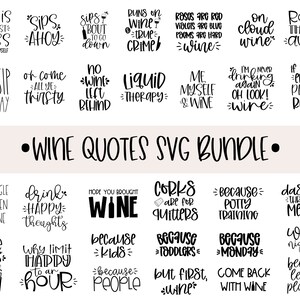 SIPS
AHOY
SIPS
'BOUT
TO GO
DOWN
RUNS ON
WINE &
TRUE
CRIME
ROSES ARE RED
VIOLETS ARE BLUE
POEMS ARE HARD
wine
on
cloud
wine
oh come
all ye
thirsty
NO
WINE
LEFT
BEHIND
LIQUID
THERAPY
ME,
MYSELF
& WINE
I'M NEVER
DRINKING
AGAIN
OH LOOK!
wine
•WINE QUOTES SVG BUNDLE•
drink
HAPPY
thoughts
HOPE YOU BROUGHT
WINE
CORKS
ARE FOR
QUITTERS
BECAUSE
POTTY
TRAINING
WHY LIMIT
HAPPY
to an
HOUR
because
KIDS
because
PEOPLE
BECAUSE
TODDLERS
BECAUSE
MONDAY
but first,
WINE
COME BACK
WITH WINE